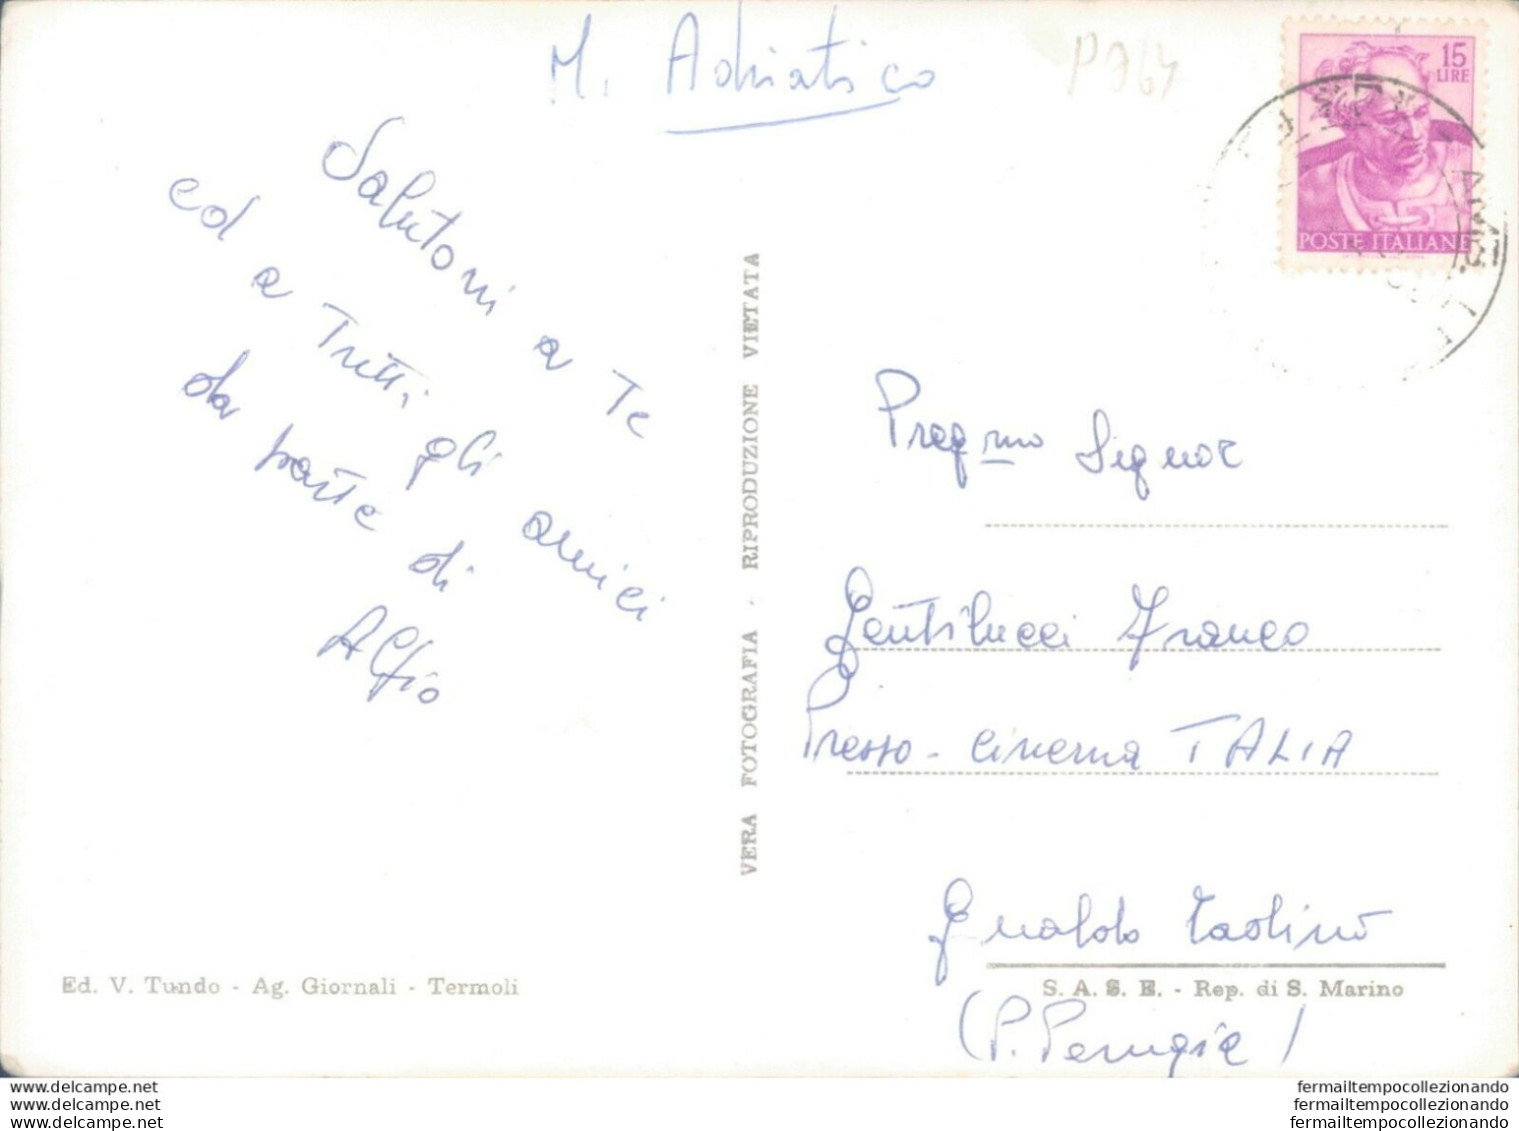 M. Adriatico
P 964
15
LIRE
POSTE ITALIANE
Salutoni a Te
ed a Tutti gli amici
da parte di
Alfio
VERA FOTOGRAFIA . RIPRODUZIONE VIETATA
Preg.mo Signor
Gentilucci Franco
Presso - cinema TALIA
Gualdo Tadino
(P. Perugia)
Ed. V. Tundo - Ag. Giornali - Termoli
S. A. S. E. - Rep. di S. Marino
www.delcampe.net
www.delcampe.net
www.delcampe.net
fermailtempocollezionando
fermailtempocollezionando
fermailtempocollezionando